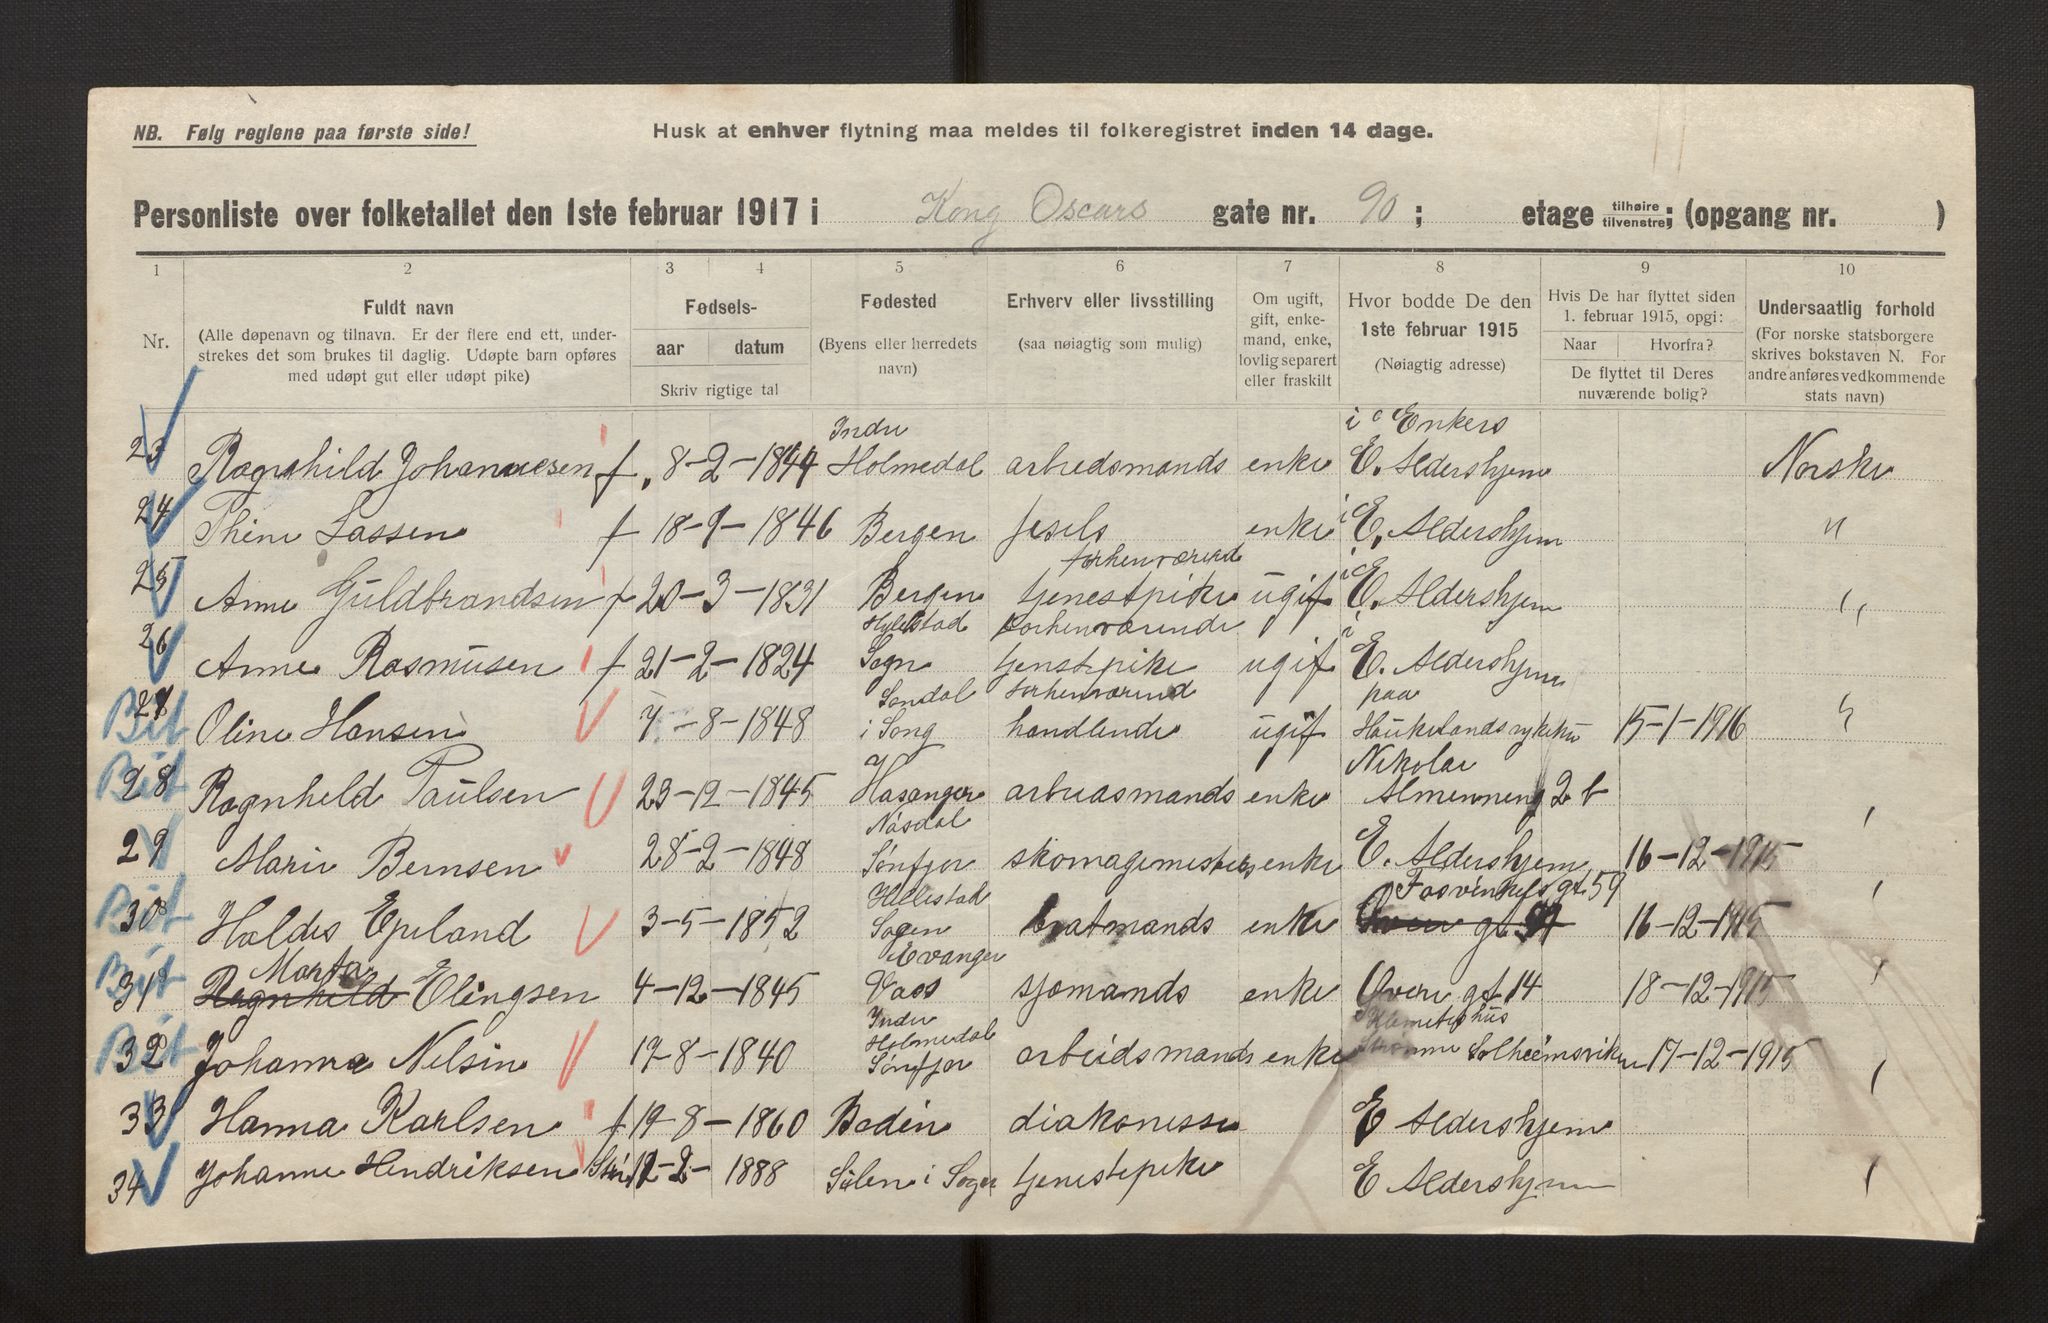 NB. Følg reglene paa første side!
Husk at enhver flytning maa meldes til folkeregistret inden 14 dage.
Personliste over folketallet den 1ste februar 1917 i Kong Oscars gate nr. 90 ; etage tilhøire tilvenstre; (opgang nr. )
1 2 3 4 5 6 7 8 9 10
Nr.
Fuldt navn
(Alle døpenavn og tilnavn. Er der flere end ett, under-
strekes det som brukes til daglig. Udøpte barn opføres
med udøpt gut eller udøpt pike)
Fødsels-
aar datum
Skriv rigtige tal
Fødested
(Byens eller herredets
navn)
Erhverv eller livsstilling
(saa nøiagtig som mulig)
Om ugift,
gift, enke-
mand, enke,
lovlig separert
eller fraskilt
Hvor bodde De den
1ste februar 1915
(Nøiagtig adresse)
Hvis De har flyttet siden
1. februar 1915, opgi:
Naar Hvorfra?
De flyttet til Deres
nuværende bolig?
Undersaatlig forhold
(For norske statsborgere
skrives bokstaven N. For
andre anføres vedkommende
stats navn)
Indre i Enkers
23 Ragnhild Johannesen f. 8-2-1844 Holmedal arbeidsmands enke E. Aldershjem Norske
24 Thine Lassen f 18-9-1846 Bergen enke i E. Aldershjem "
forhenværend
25 Anne Guldbrandsen f 20-3-1831 Bergen tjenestpike ugif i E. Aldershjem "
Hyllestad forhenværende i
26 Anne Rasmusen f 21-2-1824 Sogn tjenstpike ugif E. Aldershjem
forhenværend paa
27 Bit Oline Hansen 7-8-1848 i Song handlende ugif 15-1-1916 "
Nikolai
28 Bit Ragnheld Paulsen 23-12-1845 arbeidsmands enke Almenneng 2 b
29 Marie Bernsen 28-2-1848 Sønfjor skomagemesters enke E. Aldershjem 16-12-1915
Hillestad Fosvinkels gt 59
30 Bit Haldis Epeland 3-5-1852 Sogen enke Øvre gt 16-12-1915
Marta Evanger
31 Bit Ragnhild Elingsen 4-12-1845 Vaos sjømands enke Øvre gt 14 18-12-1915
Indre
Holmedal
32 Bit Johanna Nelsin 17-8-1840 Sønfjor arbeidsmands enke Solheimsviken 17-12-1915
33 Hanna Karlsen f 19-8-1860 Bodin diakonisse E Aldershjem
34 Johanne Hendriksen 12-2-1888 i Sogn tjenestepike E Aldershjem